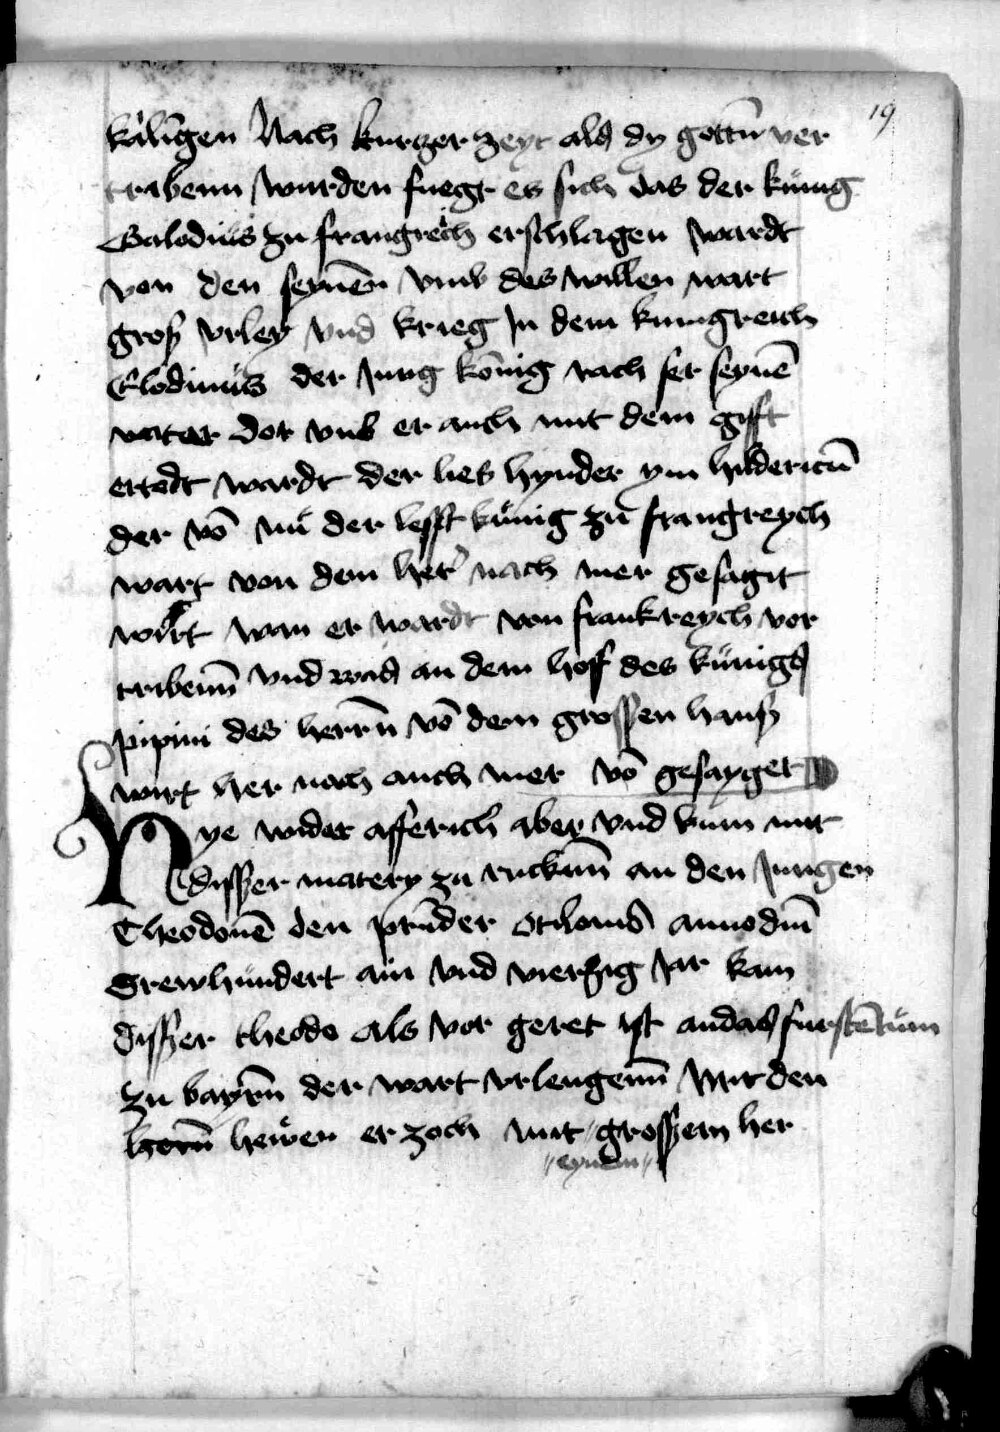 19
kalingen Nach kurtzer zeyt als dy gottn̄ ver
trabenn wurden fuegt es sich das der künig
Galodius zu frangrech erschlagen wardt
von den seynēn vmb des willen wart
groß vrley vnd krieg In dem kunigreich
Clodimus der Jung kōnig rach ser seynē
vater dot vnb er auch mit dem gifft
ertodt wardt der lies hynder ym hildericū
der vō nū der lesst künig zu frangreych
wart von dem her nach mer gesagt
wirt wan er wardt von frankreych vor
tribenn̄ vnd was an dem hoff des künigs
pipini des herrn̄ vō dem grossen hauß
wirt her nach auch mer vō gesayget
Nye wider afferich aber vnd kum mit
disser matery zu ruckum̄ an den Jungen
Theodonē den prūder otilonis anno dm̄
Drewhundert ain vnd vierzig Jar kam
disser theodo als vor geret ist an das fürstētüm
zu bayrn̄ der wart vrlengenn̄ Mit den
hewen er zoch mit grossem her
"eynem"